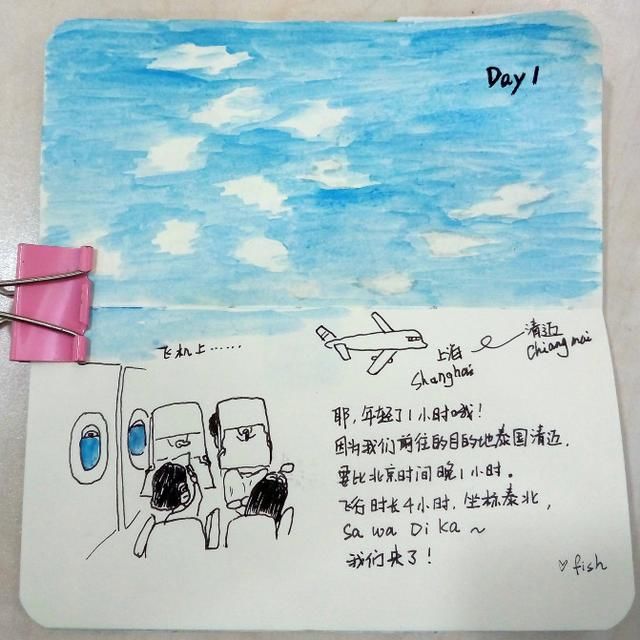 Day 1
飞机上……
上海
Shanghai
清迈
Chiang mai
耶,年轻了1小时哦!
因为我们前往的目的地泰国清迈,
要比北京时间晚1小时。
飞行时长4小时,坐标泰北,
Sa wa Di Ka ~
我们来了!
♡ fish